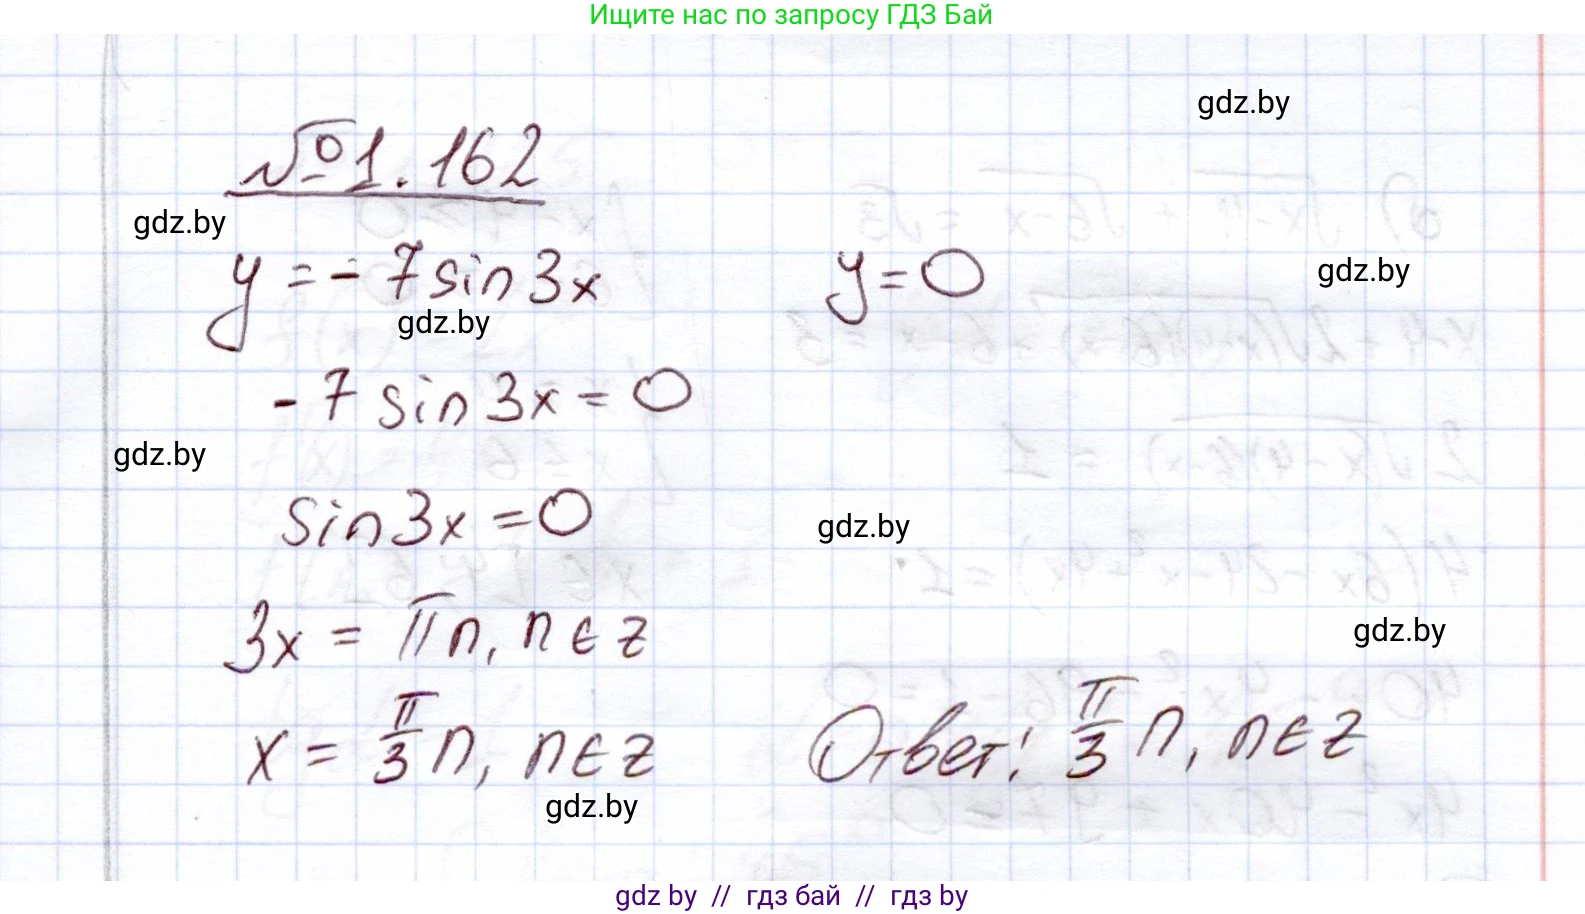 Ищите нас по запросу ГДЗ Бай
gdz.by
№1.162
gdz.by
y = - 7 sin 3x
y = 0
gdz.by
gdz.by
- 7 sin 3x = 0
gdz.by
sin 3x = 0
gdz.by
3x = πn, n ∈ z
gdz.by
x = π/3 n, n ∈ z
Ответ: π/3 n, n ∈ z
gdz.by
gdz by // гдз бай // гдз by